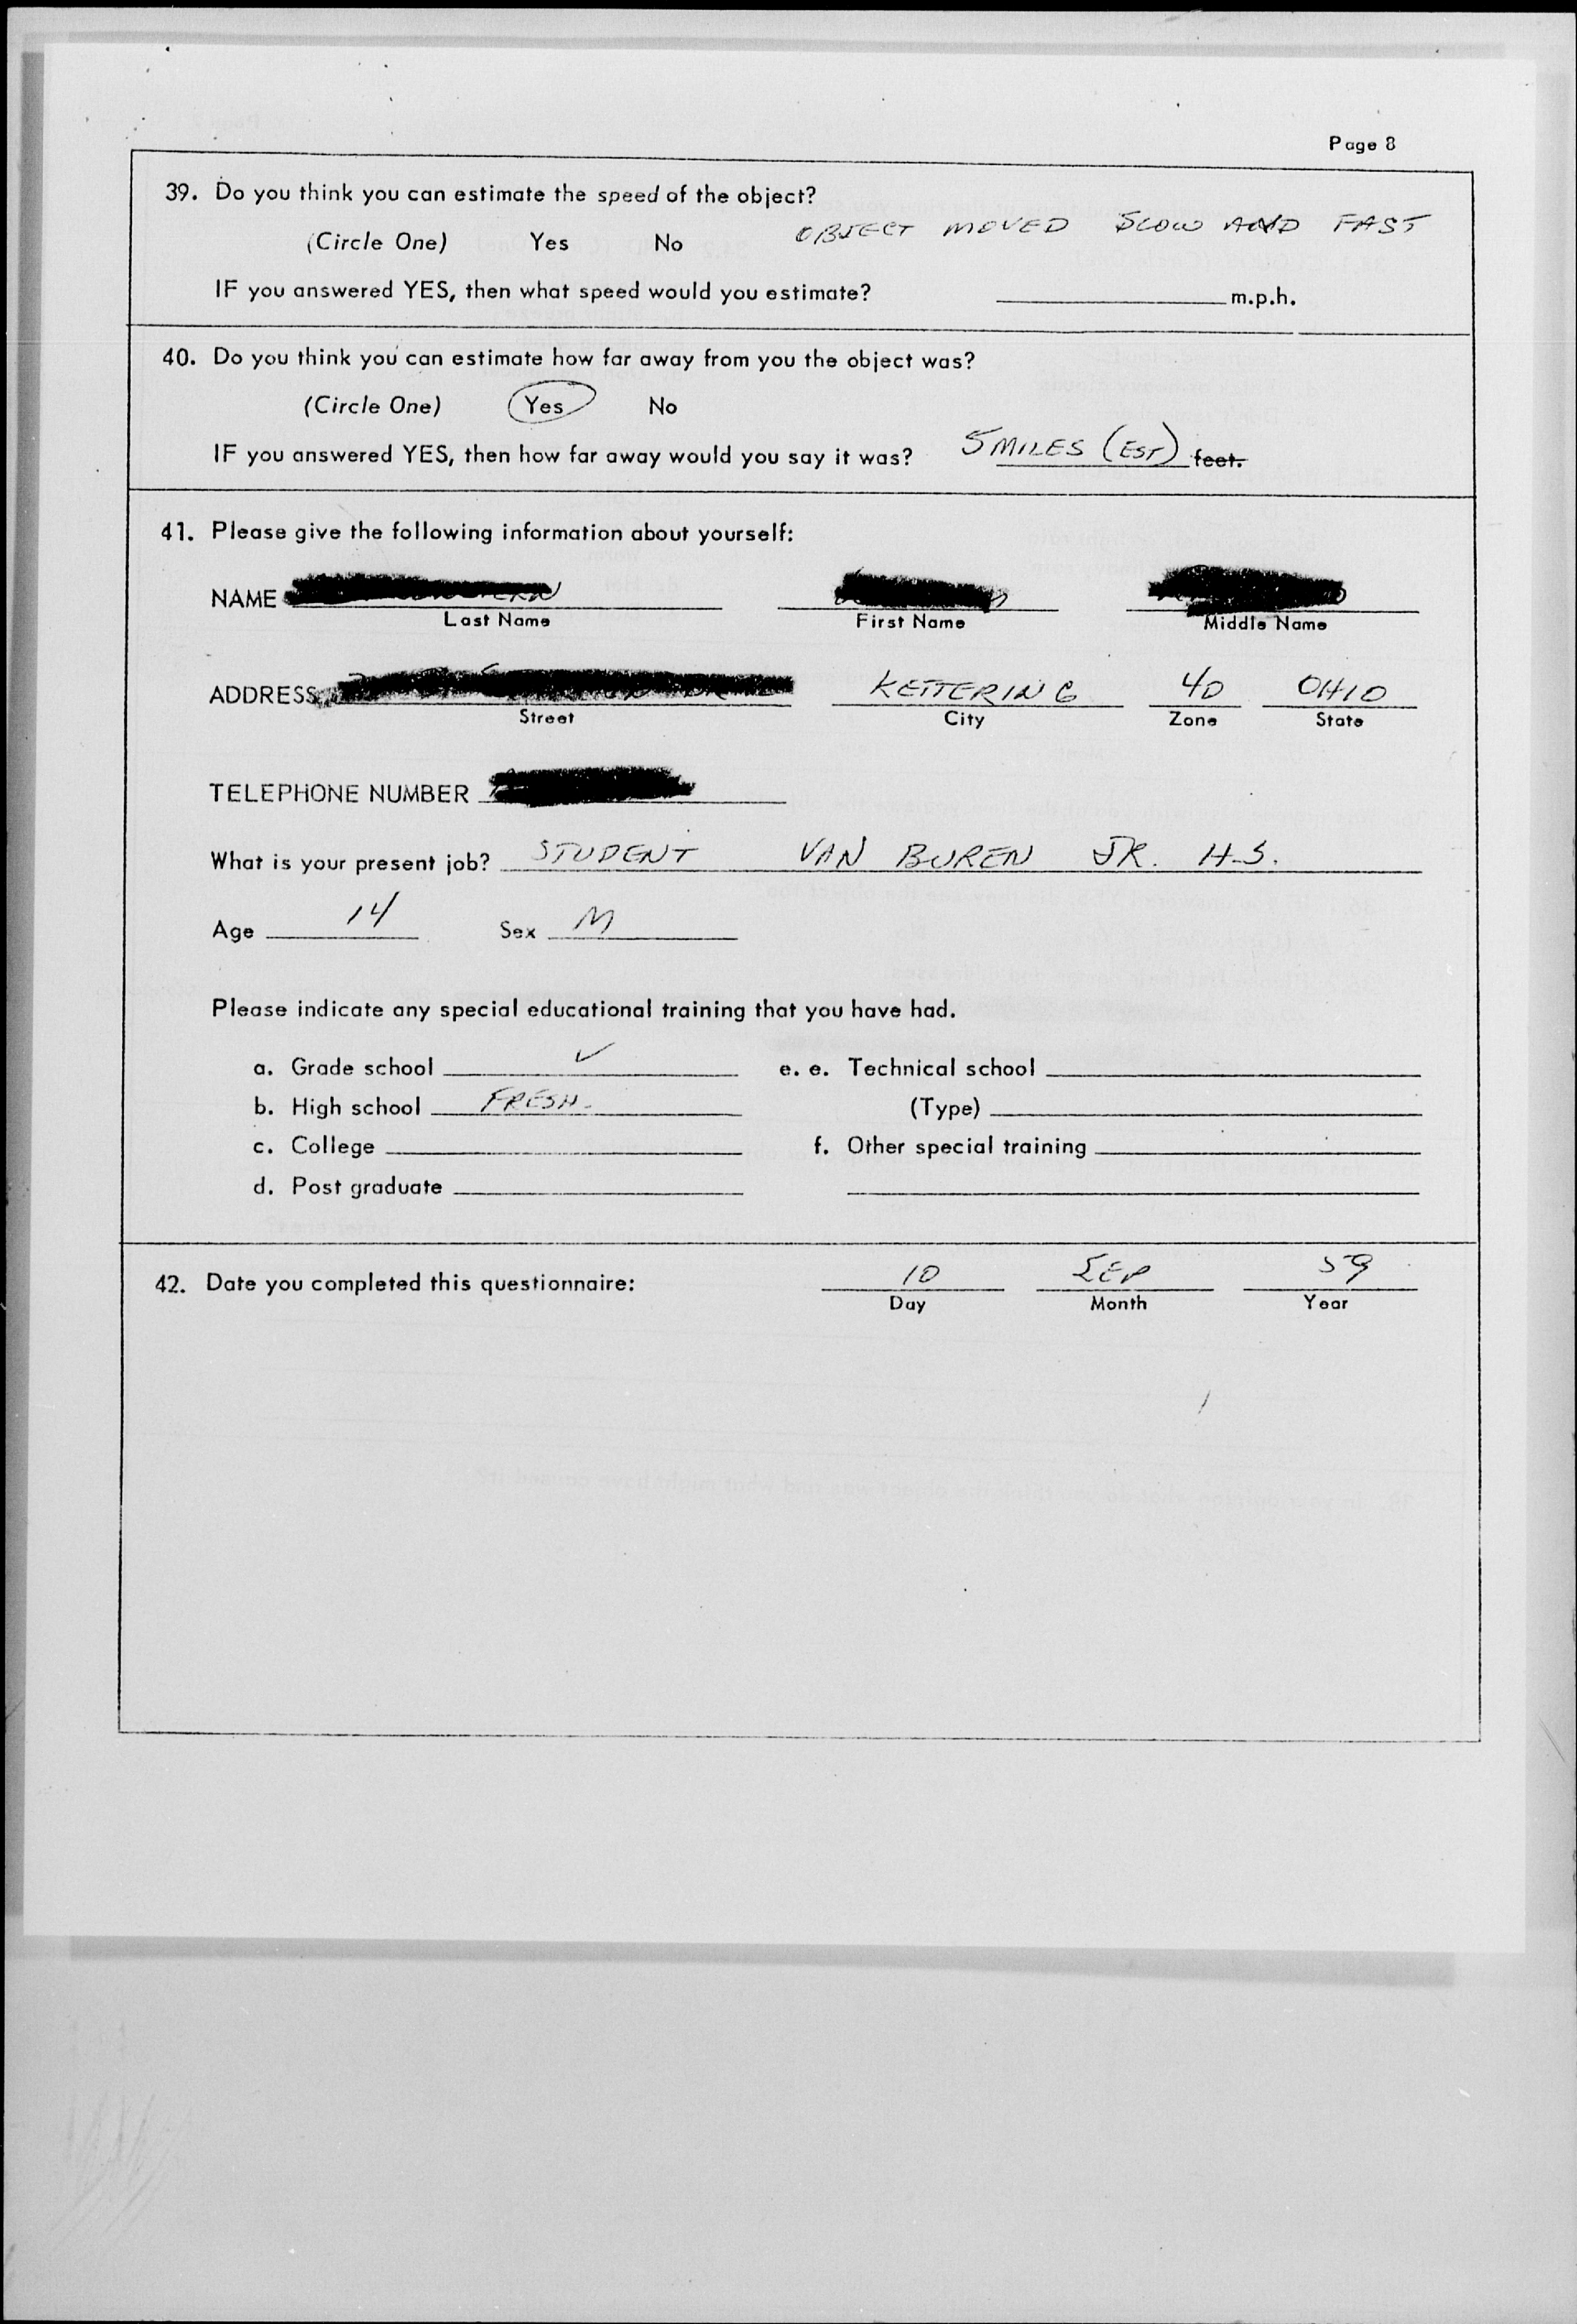 Page 8
39. Do you think you can estimate the speed of the object?
OBJECT MOVED SLOW AND FAST
(Circle One) Yes No
IF you answered YES, then what speed would you estimate? m.p.h.
40. Do you think you can estimate how far away from you the object was?
(Circle One) Yes No
IF you answered YES, then how far away would you say it was? 5 MILES (EST) feet.
41. Please give the following information about yourself:
NAME
Last Name First Name Middle Name
ADDRESS KETTERING 40 OHIO
Street City Zone State
TELEPHONE NUMBER
What is your present job? STUDENT VAN BUREN JR. H.S.
Age 14 Sex M
Please indicate any special educational training that you have had.
a. Grade school ✓ e. e. Technical school
b. High school FRESH. (Type)
c. College f. Other special training
d. Post graduate
42. Date you completed this questionnaire: 10 SEP 59
Day Month Year